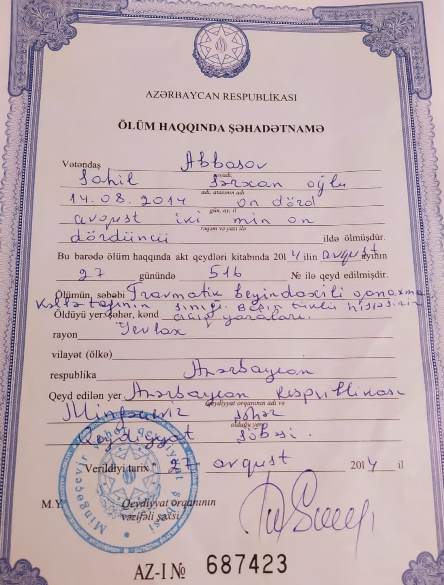 AZƏRBAYCAN RESPUBLİKASI
ÖLÜM HAQQINDA ŞƏHADƏTNAMƏ
Vətəndaş Abbasov
soyadı,
Sahil Sərxan oğlu
adı, atasının adı
14.08.2014 on dörd
gün, ay, il
avqust iki min on
rəqəm və yazı ilə
dördüncü ildə ölmüşdür.
Bu barədə ölüm haqqında akt qeydləri kitabında 2014 ilin avqust ayının
27 günündə 516 № ilə qeyd edilmişdir.
Ölümün səbəbi Travmatik beyindaxili qanaxma
Kəllə tağının sınığı. Başın tüklü hissəsinin
Öldüyü yer:şəhər, kənd açıq yaraları.
rayon Yevlax
vilayət (ölkə)
respublika Azərbaycan
Qeyd edilən yer Azərbaycan Respublikası
Qeydiyyat orqanının adı və
Mingəçevir şəhər
olduğu yer
Qeydiyyat şöbəsi.
Verildiyi tarix "27" avqust 2014 il
M.Y. Qeydiyyat orqanının
vəzifəli şəxsi
AZ-I № 687423